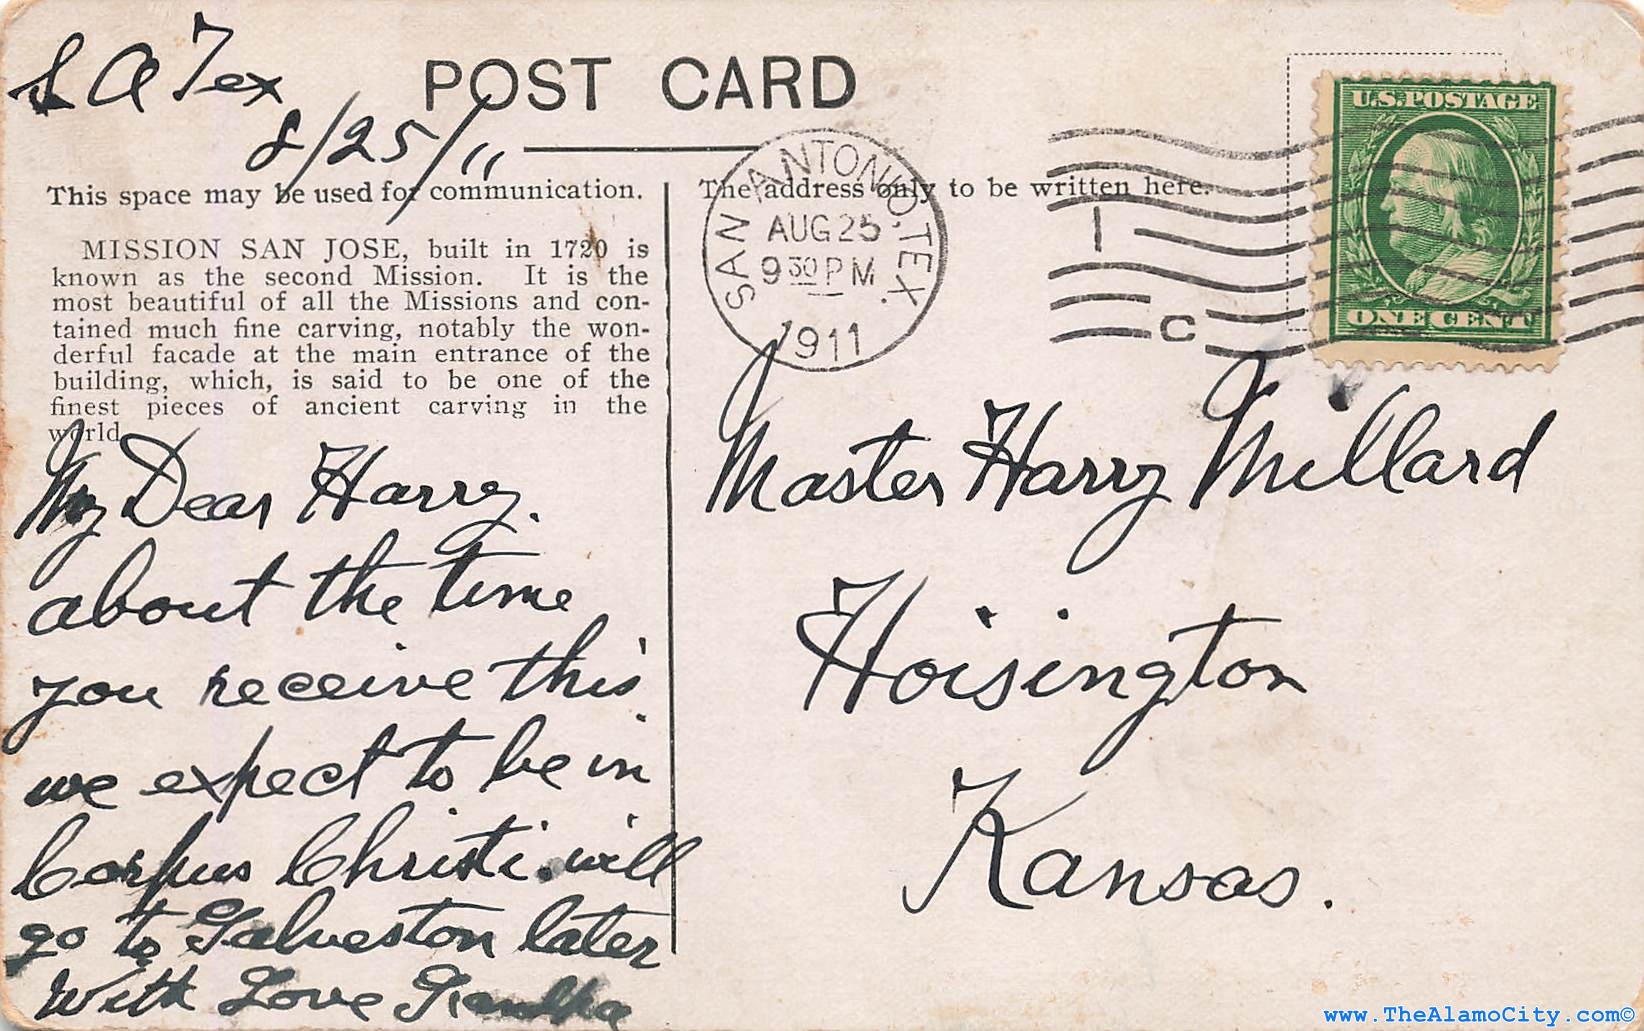 S A Tex
8/25/11
POST CARD
This space may be used for communication.
MISSION SAN JOSE, built in 1720 is
known as the second Mission. It is the
most beautiful of all the Missions and con-
tained much fine carving, notably the won-
derful facade at the main entrance of the
building, which, is said to be one of the
finest pieces of ancient carving in the
world.
My Dear Harry.
about the time
you receive this
we expect to be in
Corpus Christi. will
go to Galveston later
With Love Grandpa
The address only to be written here.
SAN ANTONIO, TEX.
AUG 25
9 30 PM
1911
1
C
U.S. POSTAGE
ONE CENT
Master Harry Millard
Hoisington
Kansas.
www.TheAlamoCity.com©